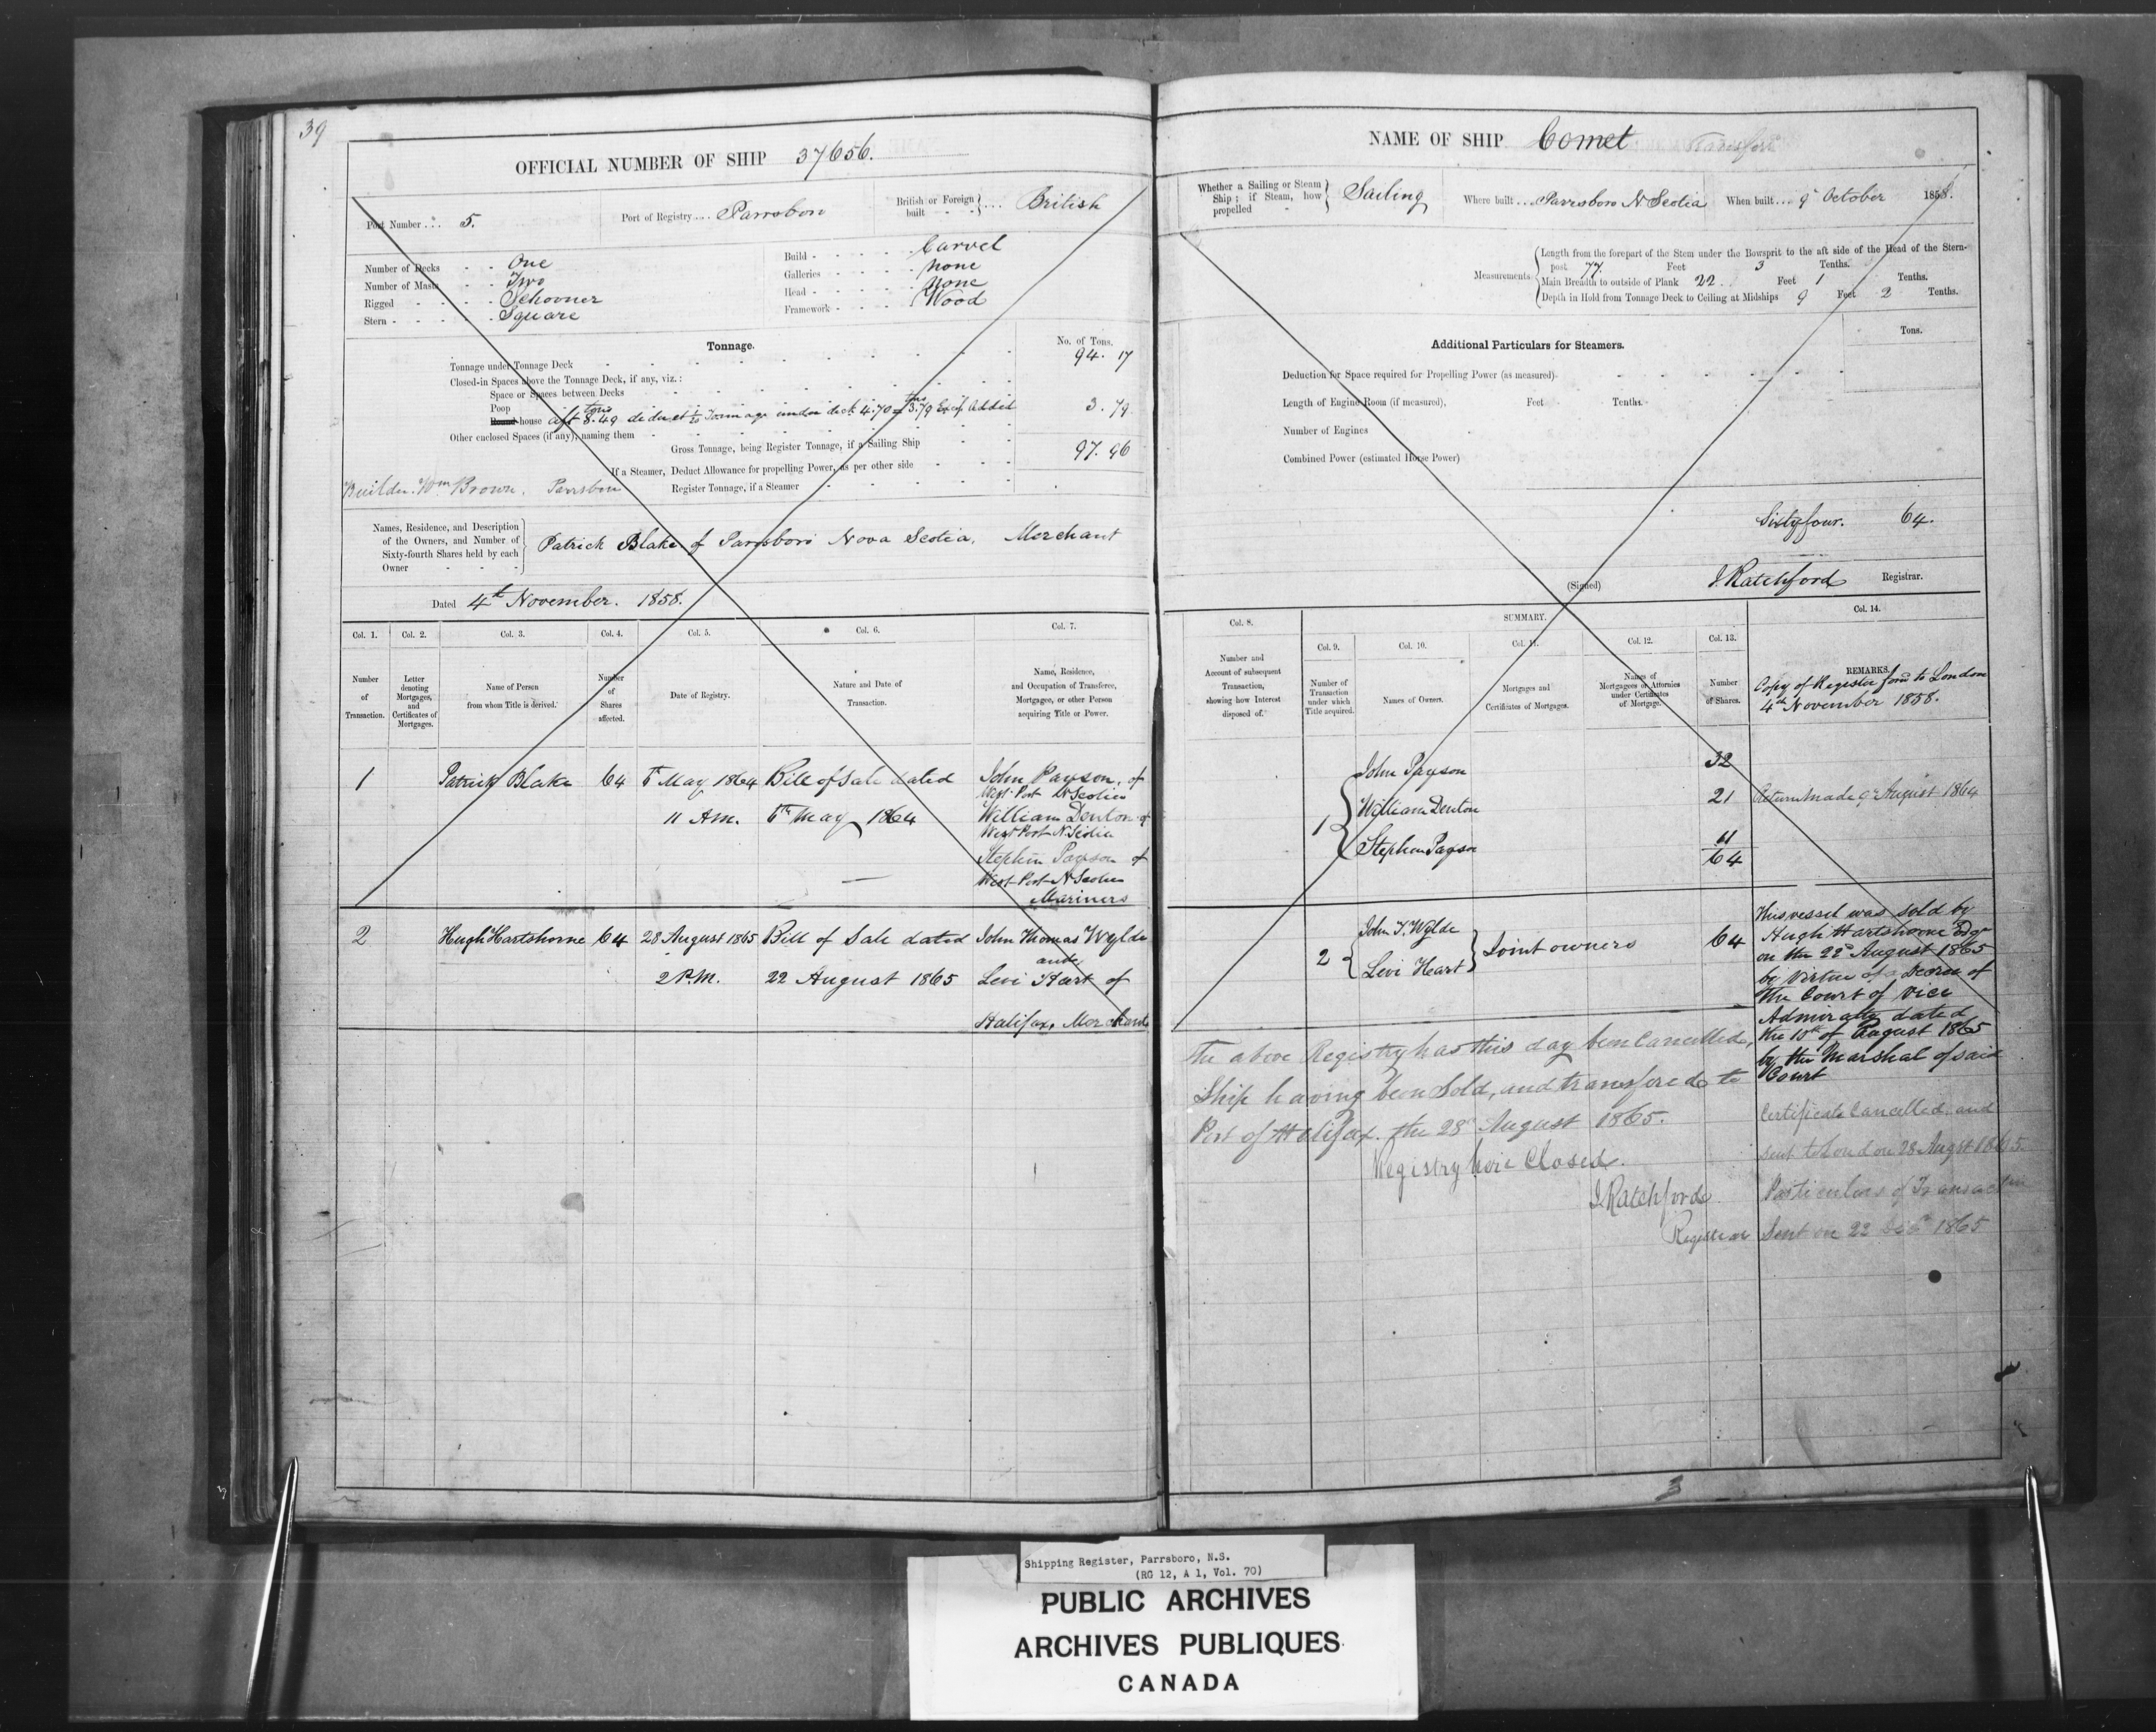 39
OFFICIAL NUMBER OF SHIP 37656.
Port Number ... 5.
Port of Registry .... Parrsboro
British or Foreign built } .... British
Number of Decks - - One
Number of Masts - - Two
Rigged - - - - Schooner
Stern - - - - - Square
Build - - - - - Carvel
Galleries - - - - none
Head - - - - - none
Framework - - - - Wood
Tonnage.
No. of Tons.
Tonnage under Tonnage Deck 94. 17
Closed-in Spaces above the Tonnage Deck, if any, viz.:
Space or Spaces between Decks
Poop
Round house aft 8.49 tons deduct to Tonnage under deck 4.70 = 3.79 Added 3. 79
Other enclosed Spaces (if any), naming them
Gross Tonnage, being Register Tonnage, if a Sailing Ship 97. 96
If a Steamer, Deduct Allowance for propelling Power, as per other side
Register Tonnage, if a Steamer
Builder. Wm Brown. Parrsboro
Names, Residence, and Description
of the Owners, and Number of
Sixty-fourth Shares held by each
Owner
Patrick Blake of Parrsboro Nova Scotia, Merchant
Dated 4th November. 1858.
Col. 1. Col. 2. Col. 3. Col. 4. Col. 5. Col. 6. Col. 7.
Number of Transaction.
Letter denoting Mortgages, and Certificates of Mortgages.
Name of Person from whom Title is derived.
Number of Shares affected.
Date of Registry.
Nature and Date of Transaction.
Name, Residence, and Occupation of Transferee, Mortgagee, or other Person acquiring Title or Power.
1 Patrick Blake 64 May 1864 Bill of Sale dated John Payson, of
West Port N Scotia
11 A.M. May 1864 William Denton of
West Port N. Scotia
Stephen Payson of
West Port N Scotia
Mariners
2 Hugh Hartshorne 64 28 August 1865 Bill of Sale dated John Thomas Wylde
and
2 P.M. 22 August 1865 Levi Hart of
Halifax, Merchants
NAME OF SHIP Comet Transfer
Whether a Sailing or Steam Ship; if Steam, how propelled } Sailing
Where built ... Parrsboro N. Scotia
When built ... 9 October 1858.
Measurements
Length from the forepart of the Stem under the Bowsprit to the aft side of the Head of the Stern-
post 77. Feet 3 Tenths.
Main Breadth to outside of Plank 22. Feet 1 Tenths.
Depth in Hold from Tonnage Deck to Ceiling at Midships 9 Feet 2 Tenths.
Additional Particulars for Steamers.
Tons.
Deduction for Space required for Propelling Power (as measured)
Length of Engine Room (if measured), Feet Tenths.
Number of Engines
Combined Power (estimated Horse Power)
Sixty four. 64.
(Signed) J. Ratchford Registrar.
SUMMARY.
Col. 8. Col. 9. Col. 10. Col. 11. Col. 12. Col. 13. Col. 14.
Number and Account of subsequent Transaction, showing how Interest disposed of.
Number of Transaction under which Title acquired.
Names of Owners.
Mortgages and Certificates of Mortgages.
Names of Mortgagees or Attornies under Certificates of Mortgage.
Number of Shares.
REMARKS.
Copy of Register forwd to London
4th November 1858.
1 { John Payson 32
William Denton 21 Return made 9 August 1864
Stephen Payson 11
64
2 { John T. Wylde
Levi Heart } Joint owners 64
This vessel was sold by
Hugh Hartshorne Esqr
on the 22d August 1865
by Virtue of a Decree of
the Court of Vice
Admiralty dated
the 10th of August 1865
by the Marshal of said
Court
The above Registry has this day been Cancelled,
Ship having been Sold, and transfered to
Port of Halifax. the 28 August 1865.
Registry here Closed.
J. Ratchford
Registrar
Certificate Cancelled and
sent to London 28 Augst 1865.
Particulars of Transaction
Sent on 22 1865
3
Shipping Register, Parrsboro, N.S.
(RG 12, A 1, Vol. 70)
PUBLIC ARCHIVES
ARCHIVES PUBLIQUES
CANADA